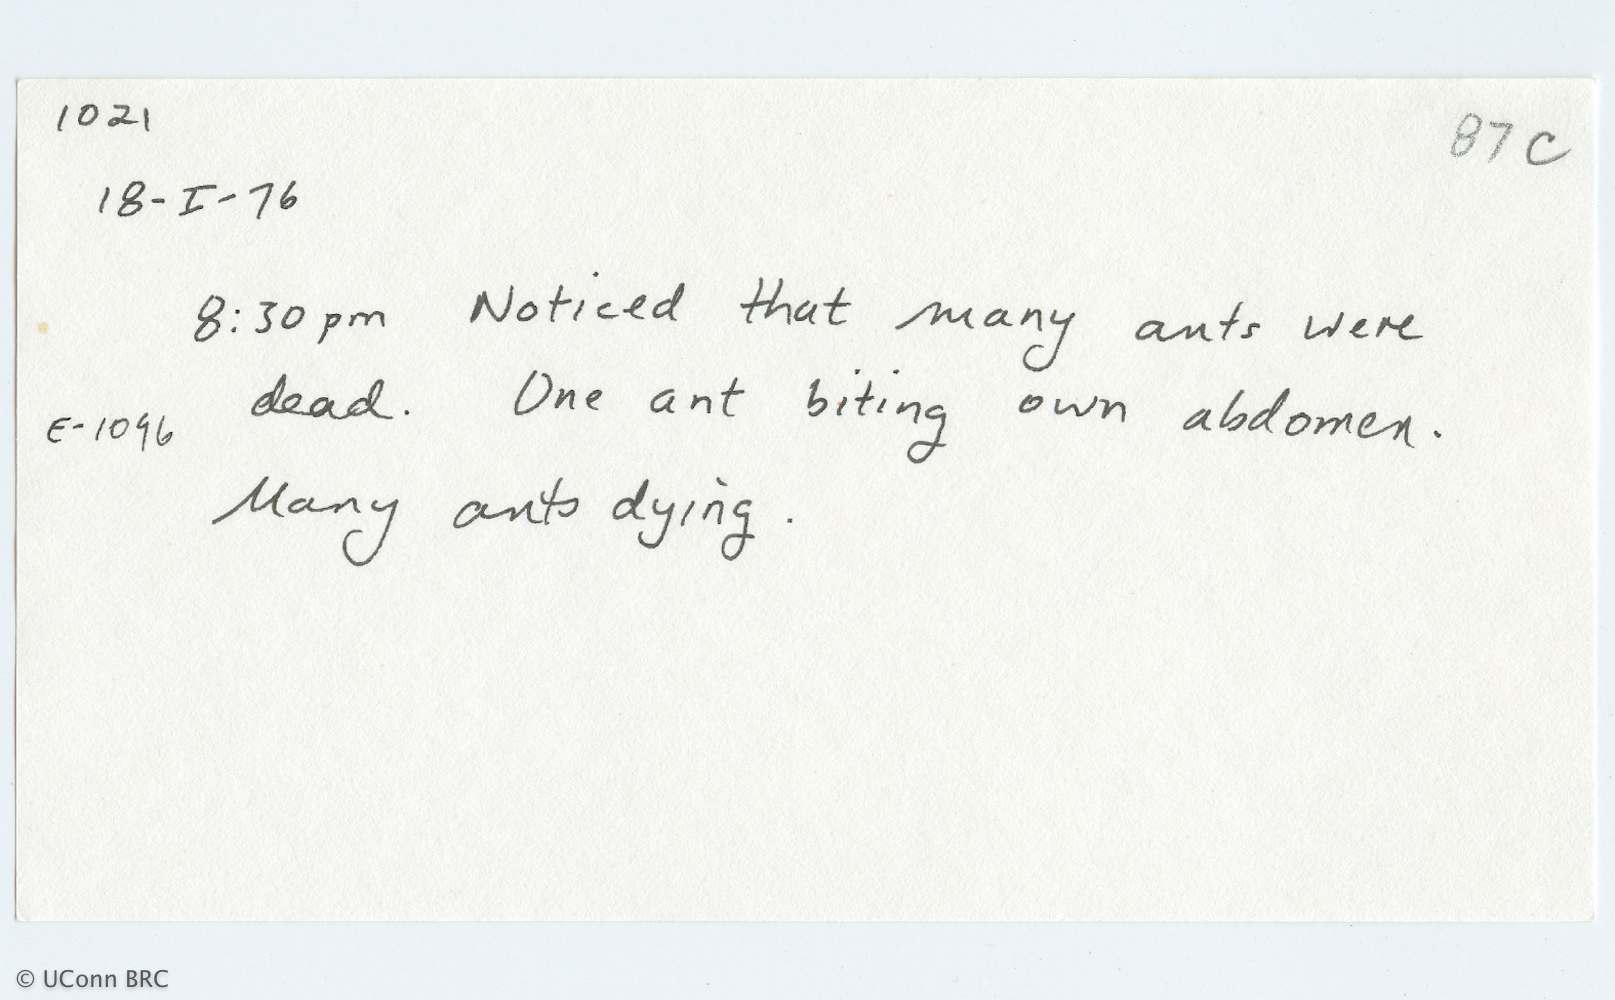 1021
87C
18-I-76
8:30pm Noticed that many ants were
dead. One ant biting own abdomen.
E-1096
Many ants dying.
© UConn BRC